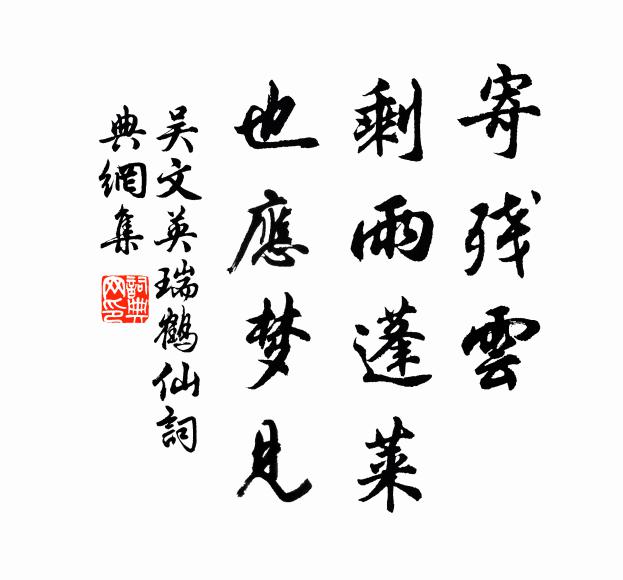 寄残雲
剩雨蓬莱
也應梦見
吴文英瑞鶴仙詞
典網集
詞典网印